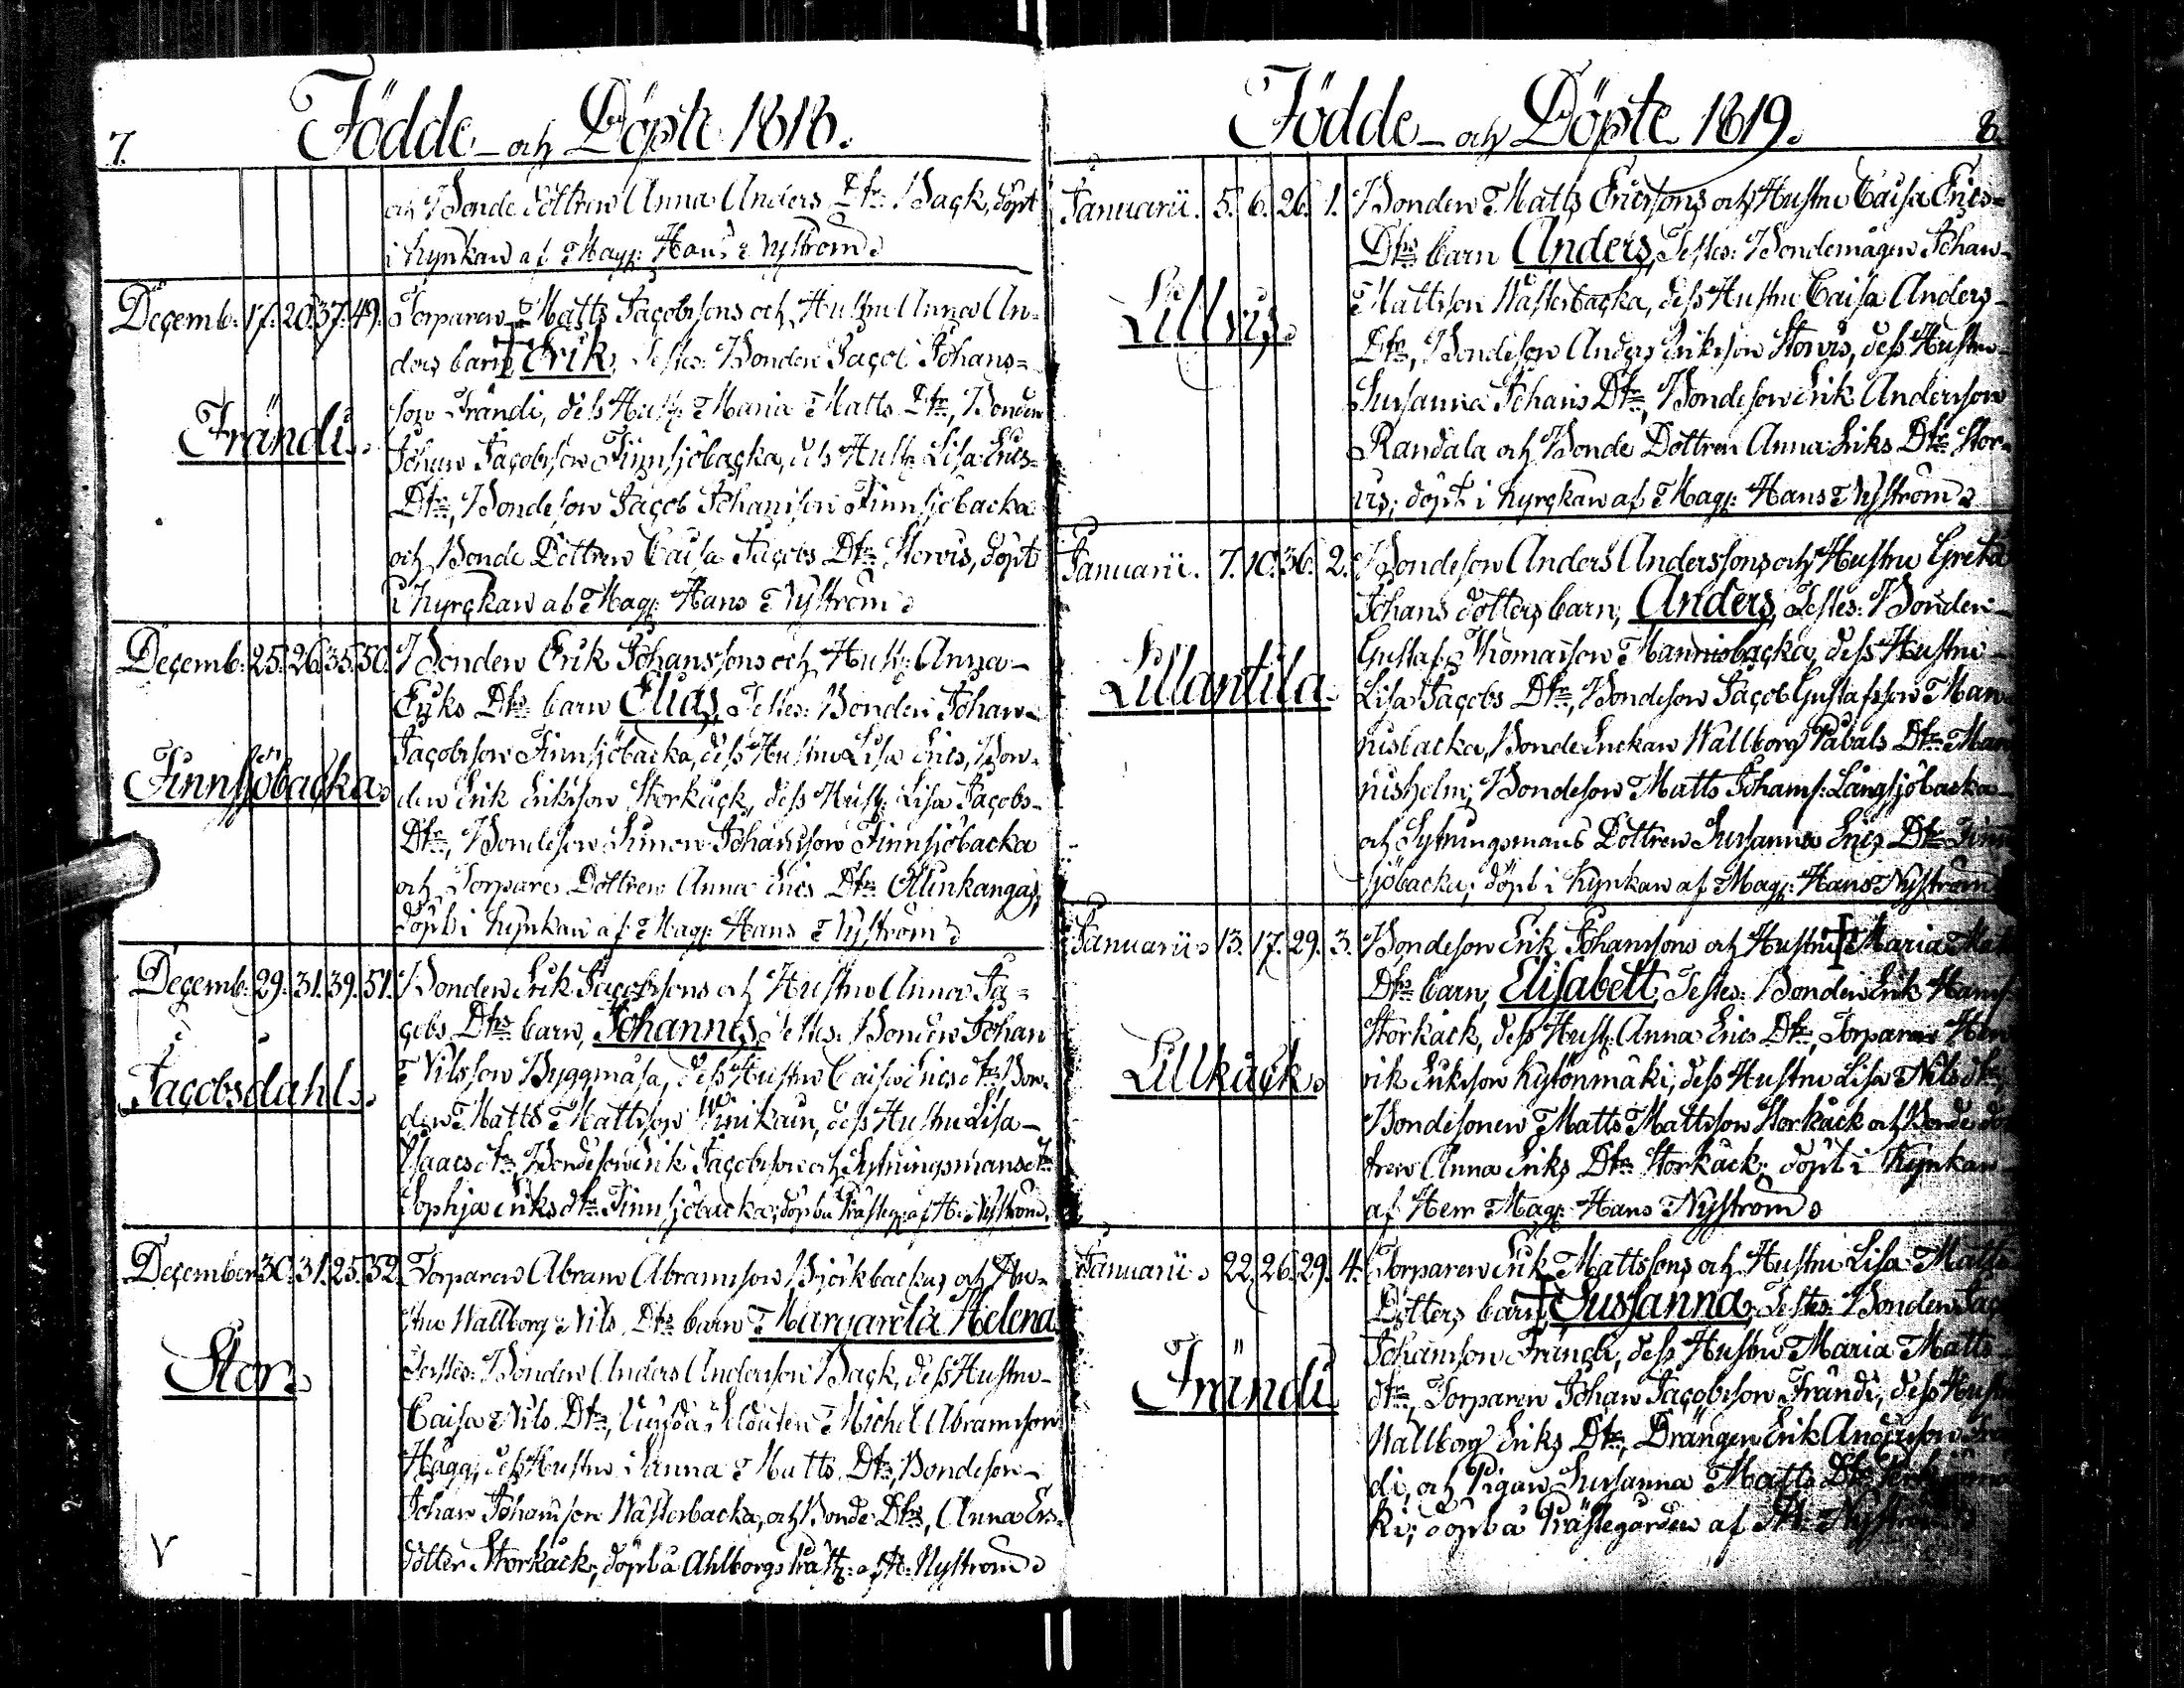 7.
Födde - och Döpte 1818.
och Bonde dottren Anna Anders Dtr Back, döpt
i kyrckan af Mag: Hans Nyström
Decemb: 17. 20. 37. 49. Torparen Matts Jacobssons och Hustru Anna An-
ders barn, Erik, Testes: Bonden Jacob Johans-
son Frändi, dess Hust: Maria Matts Dtr, Bonden
Frändi.
Johan Jacobsson Finnsjöbacka, dess Hust: Lisa Erics
Dtr, Bondeson Jacob Johansson Finnsjöbacka
och Bonde Dottren Caisa Jacobs Dtr Storris, döpt
i kyrckan af Mag: Hans Nyström
Decemb: 25. 26. 35. 50. Bonden Erik Johanssons och Hust: Anna
Eriks Dtrs barn Elias, Testes: Bonden Johan
Jacobsson Finnsjöbacka, dess Hustru Lisa Erics, Bon-
Finnsjöbacka
den Erik Eriksson Storkäck, dess Hust: Lisa Jacobs
Dtr, Bondeson Simon Johansson Finnsjöbacka
och Torpare Dottren Anna Erics Dtr
döpt i kyrckan af Mag: Hans Nyström
Decemb: 29. 31. 39. 51. Bonden Erik Jacobssons och Hustru Anna Ja-
cobs Dtrs barn, Johannes, Testes: Bonden Johan
Nilsson Byggmäsa, dess Hustru Caisa Erics dtr, Bon-
Jacobsdahl.
den Matts Mattsson Winikain, dess Hustru Lisa
Isaacs dtr, Bondeson Erik Jacobsson och Sytningsmans dtr
Sophja Eriks dtr Finnsjöbacka; döpt å Prästeg: af H: Nyström.
December 30. 31. 25. 52. Torparen Abram Abramsson Björkbacka, och Hu-
stru Wallborg Nils Dtrs barn Margareta Helena
Testes: Bonden Anders Andersson Back, dess Hustru
Stor
Caisa Nils Dtr, Soldaten Michel Abramsson
Hägg, dess Hustru Sanna Matts Dtr, Bondeson
Johan Johansson Wästerbacka, och Bonde Dtr, Anna Ers-
dotter Storkäck; döpt å Ahlborgs af H: Nyström
V
Födde - och Döpte 1819.
8.
Januarii. 5. 6. 26. 1. Bonden Matts Ericssons och Hustru Caisa Erics
Dtrs barn Anders, Testes: Bondemågen Johan
Mattsson Wästerbacka, dess Hustru Caisa Anders
Lillris.
Dtr, Bondeson Anders Eriksson Storris, dess Hustru
Susanna Johans Dtr, Bondeson Erik Andersson
Randala och Bonde Dottren Anna Eriks Dtr Stor-
ris; döpt i kyrckan af Mag: Hans Nyström
Januarii. 7. 10. 36. 2. Bondeson Anders Anderssons och Hustru Greta
Johans dotters barn, Anders, Testes: Bonden
Gustaf Thomasson Mannisbacka, dess Hustru
Lillantila
Lisa Jacobs Dtr, Bondeson Jacob Gustafsson Man
nisbacka, Bonde Enckan Wallborg Påhals Dtr Man
nisholm; Bondeson Matts Johans: Långsjöbacka
och Sytningsmans Dottren Susanna Erics Dtr Finn
sjöbacka; döpt i kyrckan af Mag: Hans Nyström
Januarii 13. 17. 29. 3. Bondeson Erik Johanssons och Hustru Maria
Dtrs barn, Elisabett, Testes: Bonden Erik Hans:
Storkäck, dess Hust: Anna Erics Dtr, Torparen Hen
Lillkäck
rik Eriksson Kytönmäki, dess Hustru Lisa Nils dtr
Bondesonen Matts Mattsson Storkäck och Bonde dot
tren Anna Eriks Dtr Storkäck; döpt i kyrckan
af Herr Mag: Hans Nyström
Januarii 22. 26. 29. 4. Torparen Erik Mattssons och Hustru Lisa Matts
Dotters barn, Susanna, Testes: Bonden
Johansson Frändi, dess Hustru Maria Matts
Frändi
dtr, Torparen Johan Jacobsson Frändi, dess
Wallborg Eriks Dtr, Drängen Erik Andersson
di, och Pigan Susanna Matts Dtr
ki; döpt å Prästegården af H: Nyström